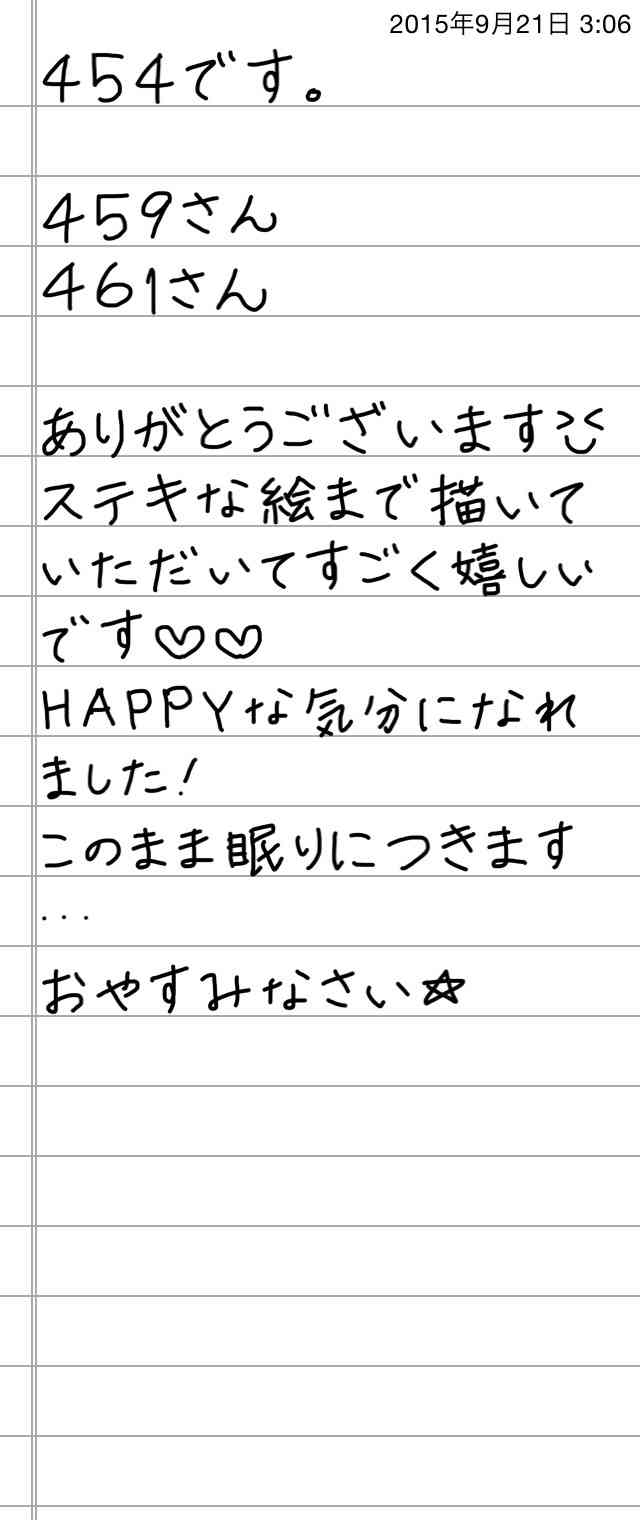 2015年9月21日 3:06
454です。
459さん
461さん
ありがとうございます
ステキな絵まで描いて
いただいてすごく嬉しい
です♡♡
HAPPYな気分になれ
ました!
このまま眠りにつきます
...
おやすみなさい☆